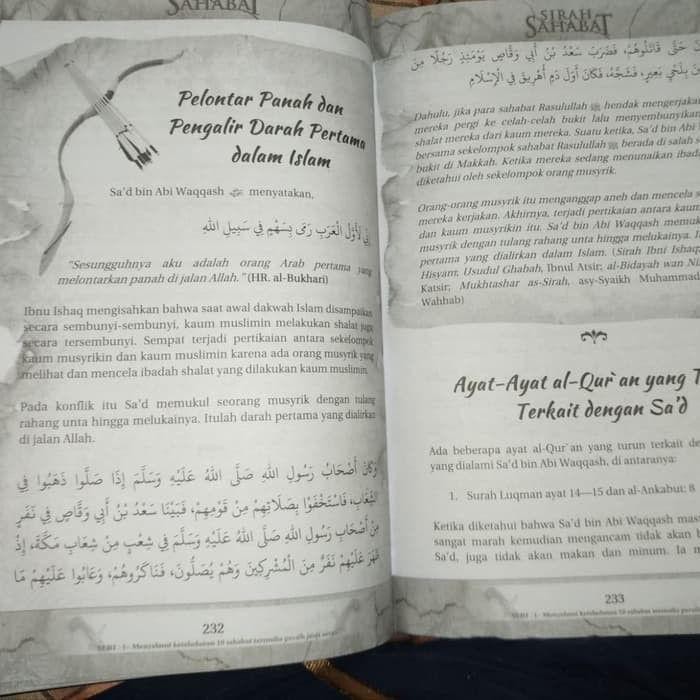 SAHABAT
Pelontar Panah dan
Pengalir Darah Pertama
dalam Islam
Sa'd bin Abi Waqqash menyatakan,
إِنِّي لَأَوَّلُ الْعَرَبِ رَمَى بِسَهْمٍ فِي سَبِيلِ اللهِ
"Sesungguhnya aku adalah orang Arab pertama yang
melontarkan panah di jalan Allah." (HR. al-Bukhari)
Ibnu Ishaq mengisahkan bahwa saat awal dakwah Islam disampaikan
secara sembunyi-sembunyi, kaum muslimin melakukan shalat juga
secara tersembunyi. Sempat terjadi pertikaian antara sekelompok
kaum musyrikin dan kaum muslimin karena ada orang musyrik yang
melihat dan mencela ibadah shalat yang dilakukan kaum muslimin.
Pada konflik itu Sa'd memukul seorang musyrik dengan tulang
rahang unta hingga melukainya. Itulah darah pertama yang dialirkan
di jalan Allah.
وَكَانَ أَصْحَابُ رَسُولِ اللهِ صَلَّى اللهُ عَلَيْهِ وَسَلَّمَ إِذَا صَلَّوْا ذَهَبُوا فِي
الشِّعَابِ، فَاسْتَخْفَوْا بِصَلَاتِهِمْ مِنْ قَوْمِهِمْ، فَبَيْنَا سَعْدُ بْنُ أَبِي وَقَّاصٍ فِي نَفَرٍ
مِنْ أَصْحَابِ رَسُولِ اللهِ صَلَّى اللهُ عَلَيْهِ وَسَلَّمَ فِي شِعْبٍ مِنْ شِعَابِ مَكَّةَ، إِذْ
ظَهَرَ عَلَيْهِمْ نَفَرٌ مِنَ الْمُشْرِكِينَ وَهُمْ يُصَلُّونَ، فَنَاكَرُوهُمْ، وَعَابُوا عَلَيْهِمْ مَا
232
SERI - 1- Menyelami keteladanan 10 sahabat tersmulia peraih janji surga
SIRAH
SAHABAT
حَتَّى قَاتَلُوهُمْ، فَضَرَبَ سَعْدُ بْنُ أَبِي وَقَّاصٍ يَوْمَئِذٍ رَجُلًا مِنَ
بِلَحْيِ بَعِيرٍ، فَشَجَّهُ، فَكَانَ أَوَّلَ دَمٍ أُهْرِيقَ فِي الْإِسْلَامِ
Dahulu, jika para sahabat Rasulullah ﷺ hendak mengerjakan
mereka pergi ke celah-celah bukit lalu menyembunyikan
shalat mereka dari kaum mereka. Suatu ketika, Sa'd bin Abi
bersama sekelompok sahabat Rasulullah ﷺ berada di salah s
bukit di Makkah. Ketika mereka sedang menunaikan ibad
diketahui oleh sekelompok orang musyrik.
Orang-orang musyrik itu menganggap aneh dan mencela s
mereka kerjakan. Akhirnya, terjadi pertikaian antara kaum
dan kaum musyrikin itu. Sa'd bin Abi Waqqash memuk
musyrik dengan tulang rahang unta hingga melukainya. I
pertama yang dialirkan dalam Islam. (Sirah Ibni Ishaq
Hisyam, Usudul Ghabah, Ibnul Atsir; al-Bidayah wan Ni
Katsir; Mukhtashar as-Sirah, asy-Syaikh Muhammad
Wahhab)
Ayat-Ayat al-Qur`an yang T
Terkait dengan Sa'd
Ada beberapa ayat al-Qur`an yang turun terkait de
yang dialami Sa'd bin Abi Waqqash, di antaranya:
1. Surah Luqman ayat 14—15 dan al-Ankabut: 8
Ketika diketahui bahwa Sa'd bin Abi Waqqash mas
sangat marah kemudian mengancam tidak akan b
Sa'd, juga tidak akan makan dan minum. Ia m
233
SERI - 1- Menyelami keteladanan 10 sahabat